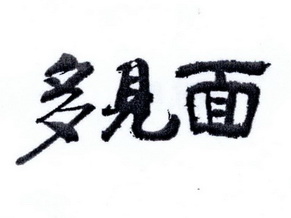 多見面